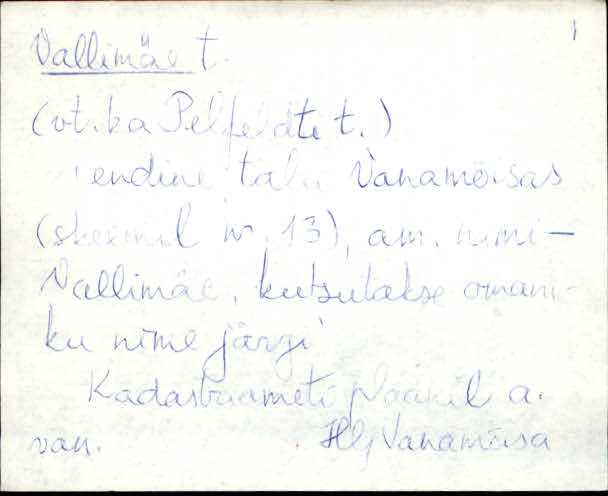 1
Vallimäe t.
(vt. ka Pelfeldti t.)
endine talu Vanamõisas
(skeemil nr. 13), am. nimi -
Vallimäe, kutsutakse omani-
ku nime järgi
Kadastriameti plaanil a.
van. Hlj Vanamõisa